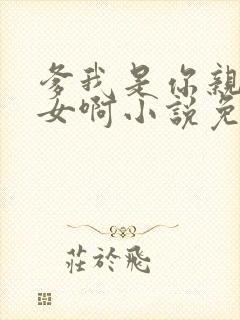 爹我是你親
女啊小説免
莊於飛